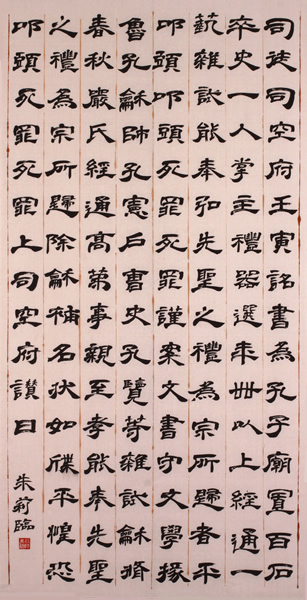 司徒司空府壬寅詔書為孔子廟置百石
卒史一人掌主禮器選年卌以上經通一
蓺雜試能奉弘先聖之禮為宗所歸者平
叩頭叩頭死罪死罪謹案文書守文學掾
魯孔龢師孔憲戶曹史孔覽等雜試龢脩
春秋嚴氏經通高第事親至孝能奉先聖
之禮為宗所歸除龢補名狀如牒平惶恐
叩頭死罪死罪上司空府讃曰
朱臨